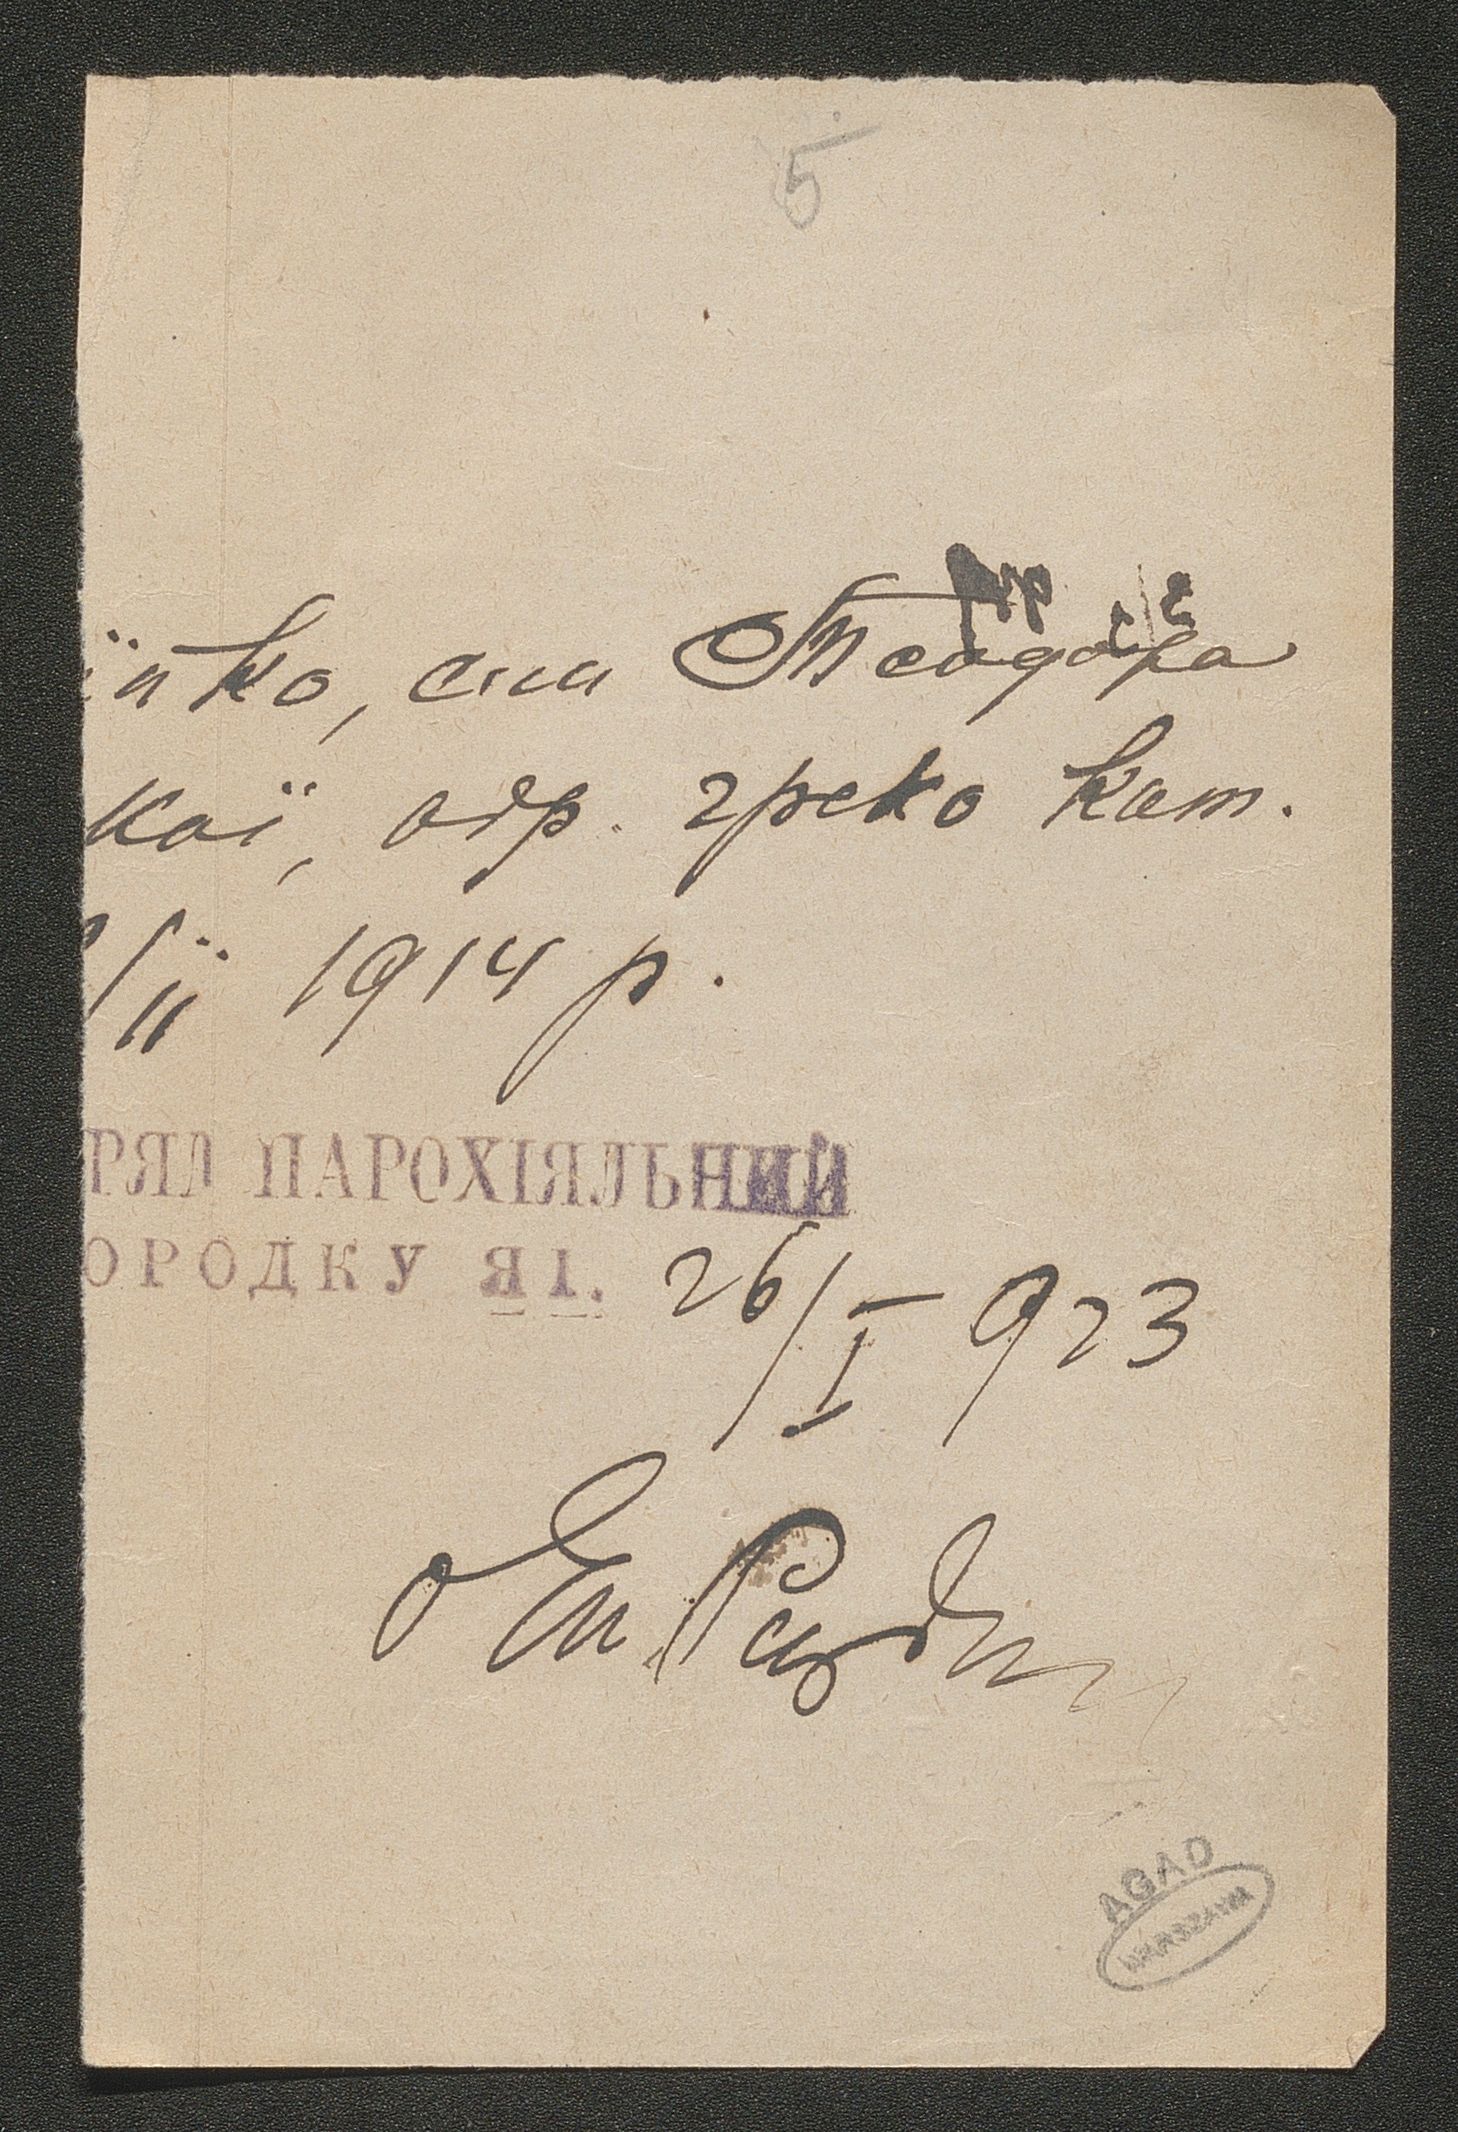 5
їпко, син Теодора
кої, обр. греко кат.
/ІІ 1914 р.
РЯД ПАРОХІЯЛЬНИЙ
ОРОДКУ ЯГ.
26/I 923
о Ем.
AGAD
WARSZAWA